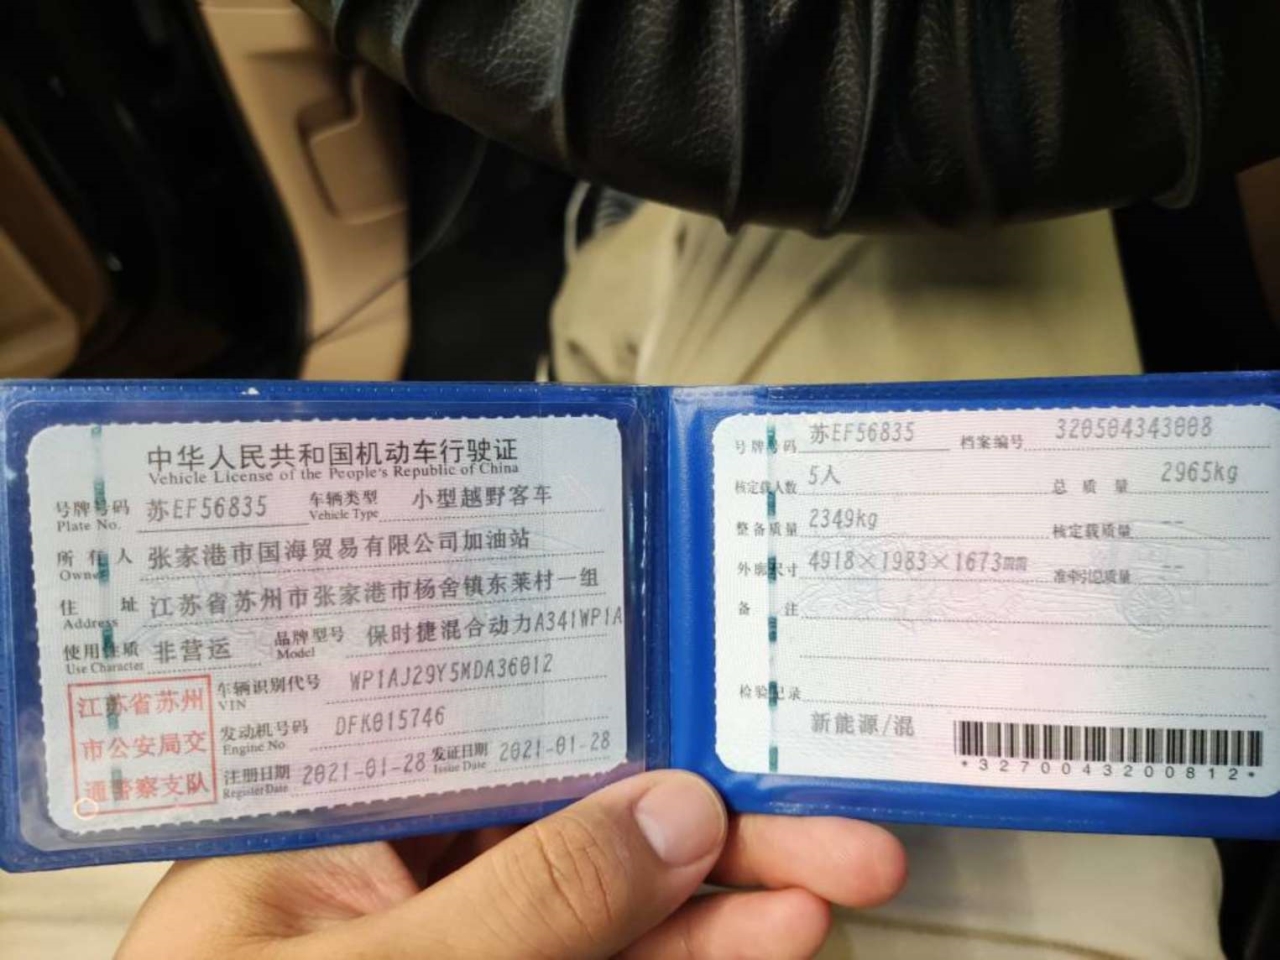 中华人民共和国机动车行驶证
Vehicle License of the People's Republic of China
号牌号码 苏EF56835 车辆类型 小型越野客车
Plate No. Vehicle Type
所有人 张家港市国海贸易有限公司加油站
Owner
住址 江苏省苏州市张家港市杨舍镇东莱村一组
Address
使用性质 非营运 品牌型号 保时捷混合动力A341WP1A
Use Character Model
车辆识别代号 WP1AJ29Y5MDA36012
VIN
发动机号码 DFK015746
Engine No.
注册日期 2021-01-28 发证日期 2021-01-28
Register Date Issue Date
江苏省苏州
市公安局交
通警察支队
号牌号码 苏EF56835 档案编号 320504343008
核定载人数 5人 总质量 2965kg
整备质量 2349kg 核定载质量 --
外廓尺寸 4918×1983×1673mm 准牵引总质量 --
备注
检验记录
新能源/混
*3270043200812*